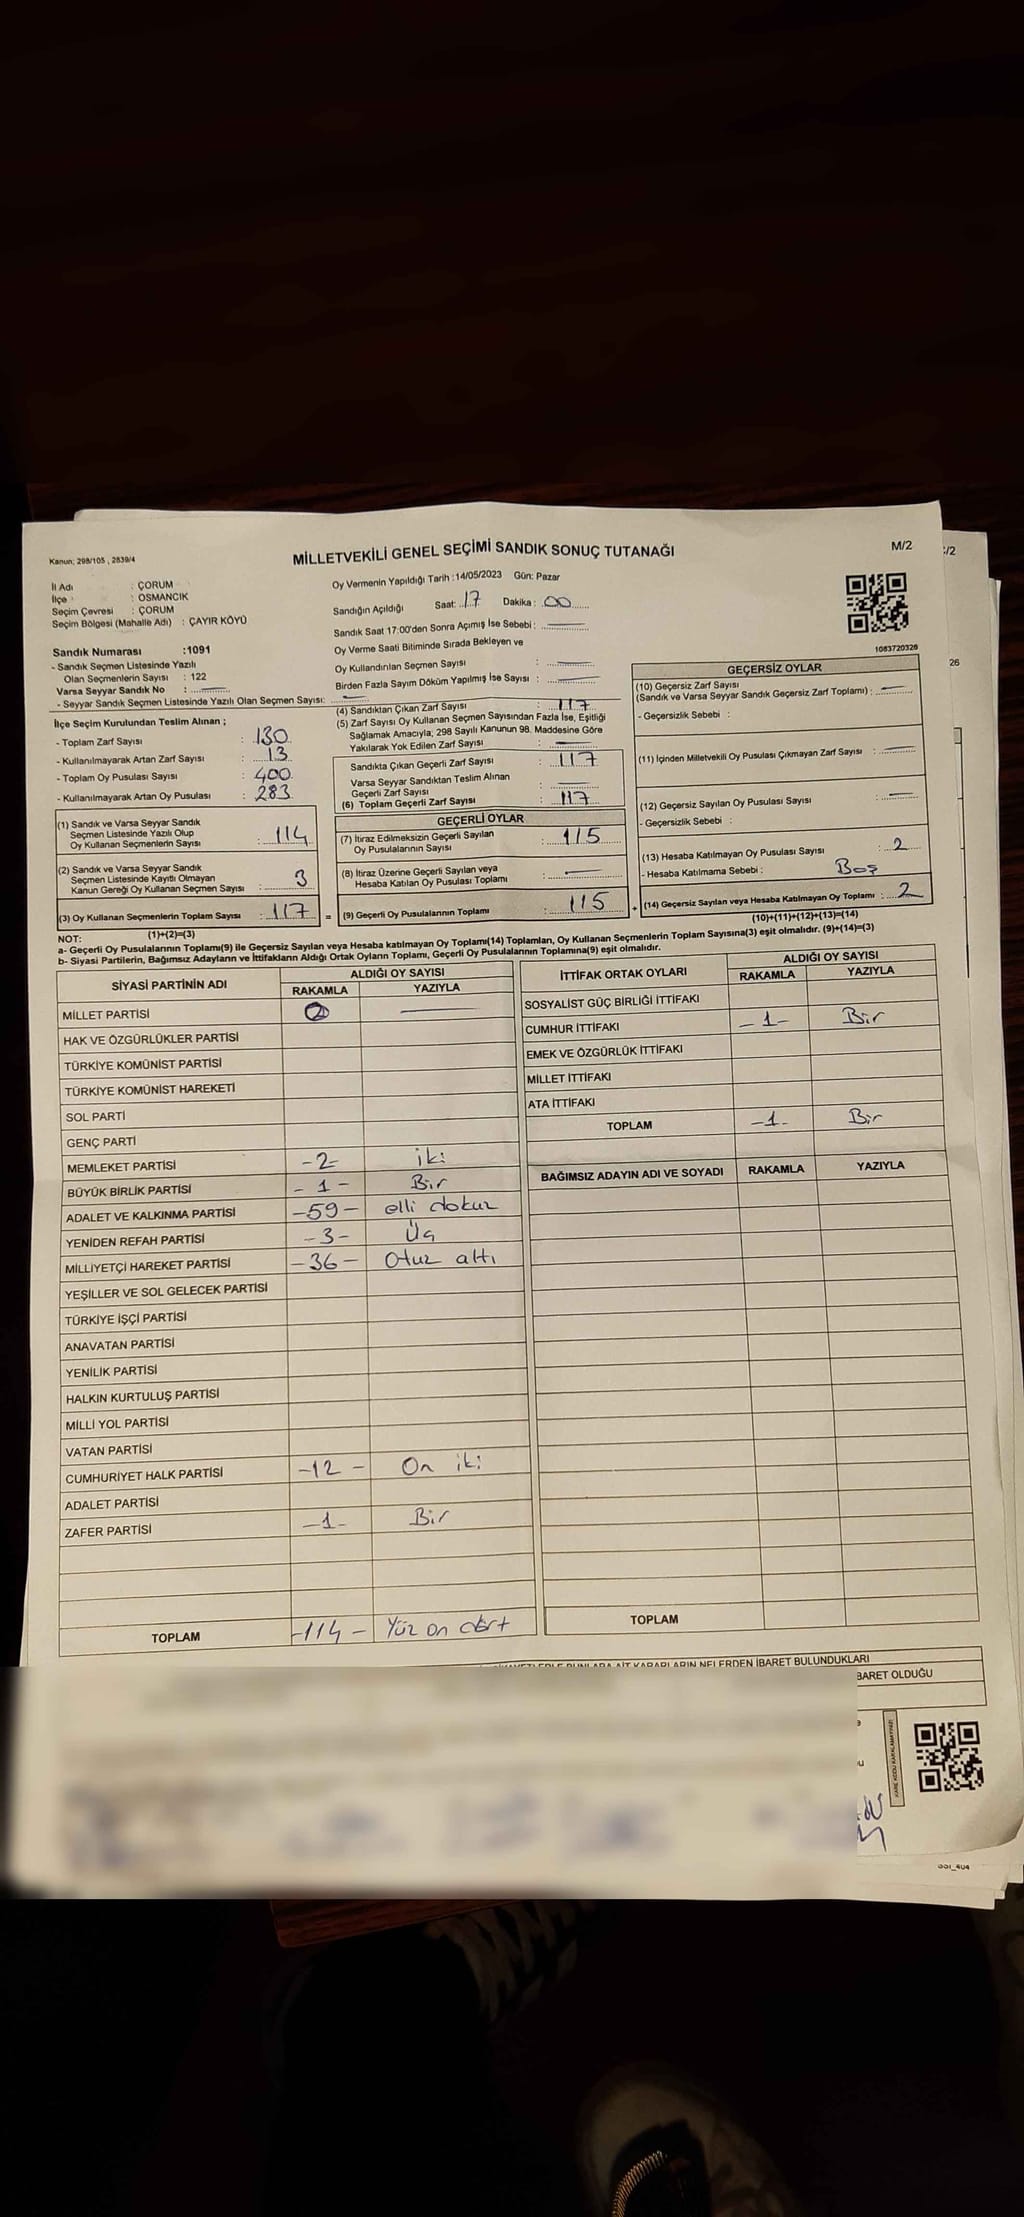 Kanun; 298/105 , 2839/4
MİLLETVEKİLİ GENEL SEÇİMİ SANDIK SONUÇ TUTANAĞI
M/2
:/2
İl Adı : ÇORUM
İlçe : OSMANCIK
Seçim Çevresi : ÇORUM
Seçim Bölgesi (Mahalle Adı) : ÇAYIR KÖYÜ
Oy Vermenin Yapıldığı Tarih :14/05/2023 Gün: Pazar
Sandığın Açıldığı Saat: 17 Dakika : 00
Sandık Saat 17:00'den Sonra Açımış İse Sebebi :
Oy Verme Saati Bitiminde Sırada Bekleyen ve
Oy Kullandırılan Seçmen Sayısı :
Birden Fazla Sayım Döküm Yapılmış İse Sayısı :
1083720326
26
Sandık Numarası :1091
- Sandık Seçmen Listesinde Yazılı
Olan Seçmenlerin Sayısı : 122
Varsa Seyyar Sandık No :
- Seyyar Sandık Seçmen Listesinde Yazılı Olan Seçmen Sayısı:
İlçe Seçim Kurulundan Teslim Alınan ;
- Toplam Zarf Sayısı : 130
- Kullanılmayarak Artan Zarf Sayısı : 13
- Toplam Oy Pusulası Sayısı : 400
- Kullanılmayarak Artan Oy Pusulası : 283
(1) Sandık ve Varsa Seyyar Sandık
Seçmen Listesinde Yazılı Olup
Oy Kullanan Seçmenlerin Sayısı : 114
(2) Sandık ve Varsa Seyyar Sandık
Seçmen Listesinde Kayıtlı Olmayan
Kanun Gereği Oy Kullanan Seçmen Sayısı : 3
(3) Oy Kullanan Seçmenlerin Toplam Sayısı : 117 =
(1)+(2)=(3)
(4) Sandıktan Çıkan Zarf Sayısı : 117
(5) Zarf Sayısı Oy Kullanan Seçmen Sayısından Fazla İse, Eşitliği
Sağlamak Amacıyla; 298 Sayılı Kanunun 98. Maddesine Göre
Yakılarak Yok Edilen Zarf Sayısı :
Sandıkta Çıkan Geçerli Zarf Sayısı : 117
Varsa Seyyar Sandıktan Teslim Alınan
Geçerli Zarf Sayısı :
(6) Toplam Geçerli Zarf Sayısı : 117
GEÇERLİ OYLAR
(7) İtiraz Edilmeksizin Geçerli Sayılan
Oy Pusulalarının Sayısı : 115
(8) İtiraz Üzerine Geçerli Sayılan veya
Hesaba Katılan Oy Pusulası Toplamı :
(9) Geçerli Oy Pusulalarının Toplamı : 115 +
GEÇERSİZ OYLAR
(10) Geçersiz Zarf Sayısı
(Sandık ve Varsa Seyyar Sandık Geçersiz Zarf Toplamı) :
- Geçersizlik Sebebi :
(11) İçinden Milletvekili Oy Pusulası Çıkmayan Zarf Sayısı :
(12) Geçersiz Sayılan Oy Pusulası Sayısı :
- Geçersizlik Sebebi :
(13) Hesaba Katılmayan Oy Pusulası Sayısı : 2
- Hesaba Katılmama Sebebi : Boş
(14) Geçersiz Sayılan veya Hesaba Katılmayan Oy Toplamı : 2
(10)+(11)+(12)+(13)=(14)
NOT:
a- Geçerli Oy Pusulalarının Toplamı(9) ile Geçersiz Sayılan veya Hesaba katılmayan Oy Toplamı(14) Toplamları, Oy Kullanan Seçmenlerin Toplam Sayısına(3) eşit olmalıdır. (9)+(14)=(3)
b- Siyasi Partilerin, Bağımsız Adayların ve İttifakların Aldığı Ortak Oyların Toplamı, Geçerli Oy Pusulalarının Toplamına(9) eşit olmalıdır.
SİYASİ PARTİNİN ADI
ALDIĞI OY SAYISI
RAKAMLA YAZIYLA
MİLLET PARTİSİ
HAK VE ÖZGÜRLÜKLER PARTİSİ
TÜRKİYE KOMÜNİST PARTİSİ
TÜRKİYE KOMÜNİST HAREKETİ
SOL PARTİ
GENÇ PARTİ
MEMLEKET PARTİSİ -2- iki
BÜYÜK BİRLİK PARTİSİ -1- Bir
ADALET VE KALKINMA PARTİSİ -59- elli dokuz
YENİDEN REFAH PARTİSİ -3- Üç
MİLLİYETÇİ HAREKET PARTİSİ -36- Otuz altı
YEŞİLLER VE SOL GELECEK PARTİSİ
TÜRKİYE İŞÇİ PARTİSİ
ANAVATAN PARTİSİ
YENİLİK PARTİSİ
HALKIN KURTULUŞ PARTİSİ
MİLLİ YOL PARTİSİ
VATAN PARTİSİ
CUMHURİYET HALK PARTİSİ -12- On iki
ADALET PARTİSİ
ZAFER PARTİSİ -1- Bir
TOPLAM -114- Yüz on dört
İTTİFAK ORTAK OYLARI
ALDIĞI OY SAYISI
RAKAMLA YAZIYLA
SOSYALİST GÜÇ BİRLİĞİ İTTİFAKI
CUMHUR İTTİFAKI -1- Bir
EMEK VE ÖZGÜRLÜK İTTİFAKI
MİLLET İTTİFAKI
ATA İTTİFAKI
TOPLAM -1- Bir
BAĞIMSIZ ADAYIN ADI VE SOYADI RAKAMLA YAZIYLA
TOPLAM
KARARLARIN NELERDEN İBARET BULUNDUKLARI
BARET OLDUĞU